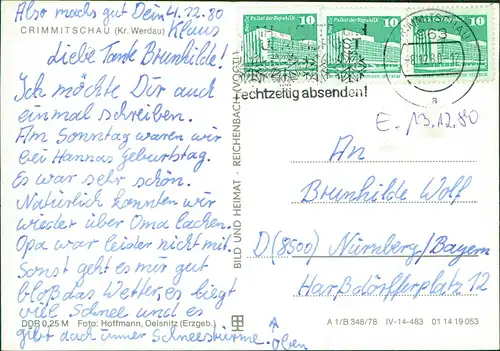 Also machs gut Dein
Klaus
4.12.80
CRIMMITSCHAU (Kr. Werdau)
Liebe Tante Brunhilde!
Ich möchte Dir auch
einmal schreiben.
Am Sonntag waren wir
bei Hannas Geburtstag.
Es war sehr schön.
Natürlich konnten wir
wieder über Oma lachen.
Opa war leider nicht mit.
Sonst geht es mir gut
bloß das Wetter, es liegt
viel Schnee und es
gibt auch immer Schneestürme. oben
DDR 0,25 M Foto: Hoffmann, Oelsnitz (Erzgeb.)
BILD UND HEIMAT · REICHENBACH (VOGTL)
Palast der Republik 10
Palast der Republik 10
10
CRIMMITSCHAU
a
rechtzeitig absenden!
E. 13.12.80
An
Brunhilde Wolf
D (8500) Nürnberg/Bayern
Harßdörfferplatz 12
A 1/B 348/78 IV-14-483 01 14 19 053